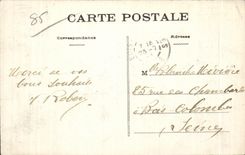 85
CARTE POSTALE
Correspondance
Adresse
Merci de vos
bons souhaits
Robert
M Blanche
85 rue des Chambards
Bois Colombes
Seine